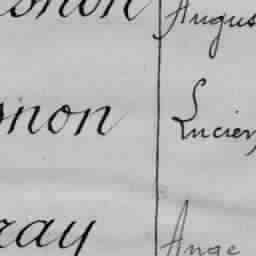 snon Augus
snon Lucien
ray Ange